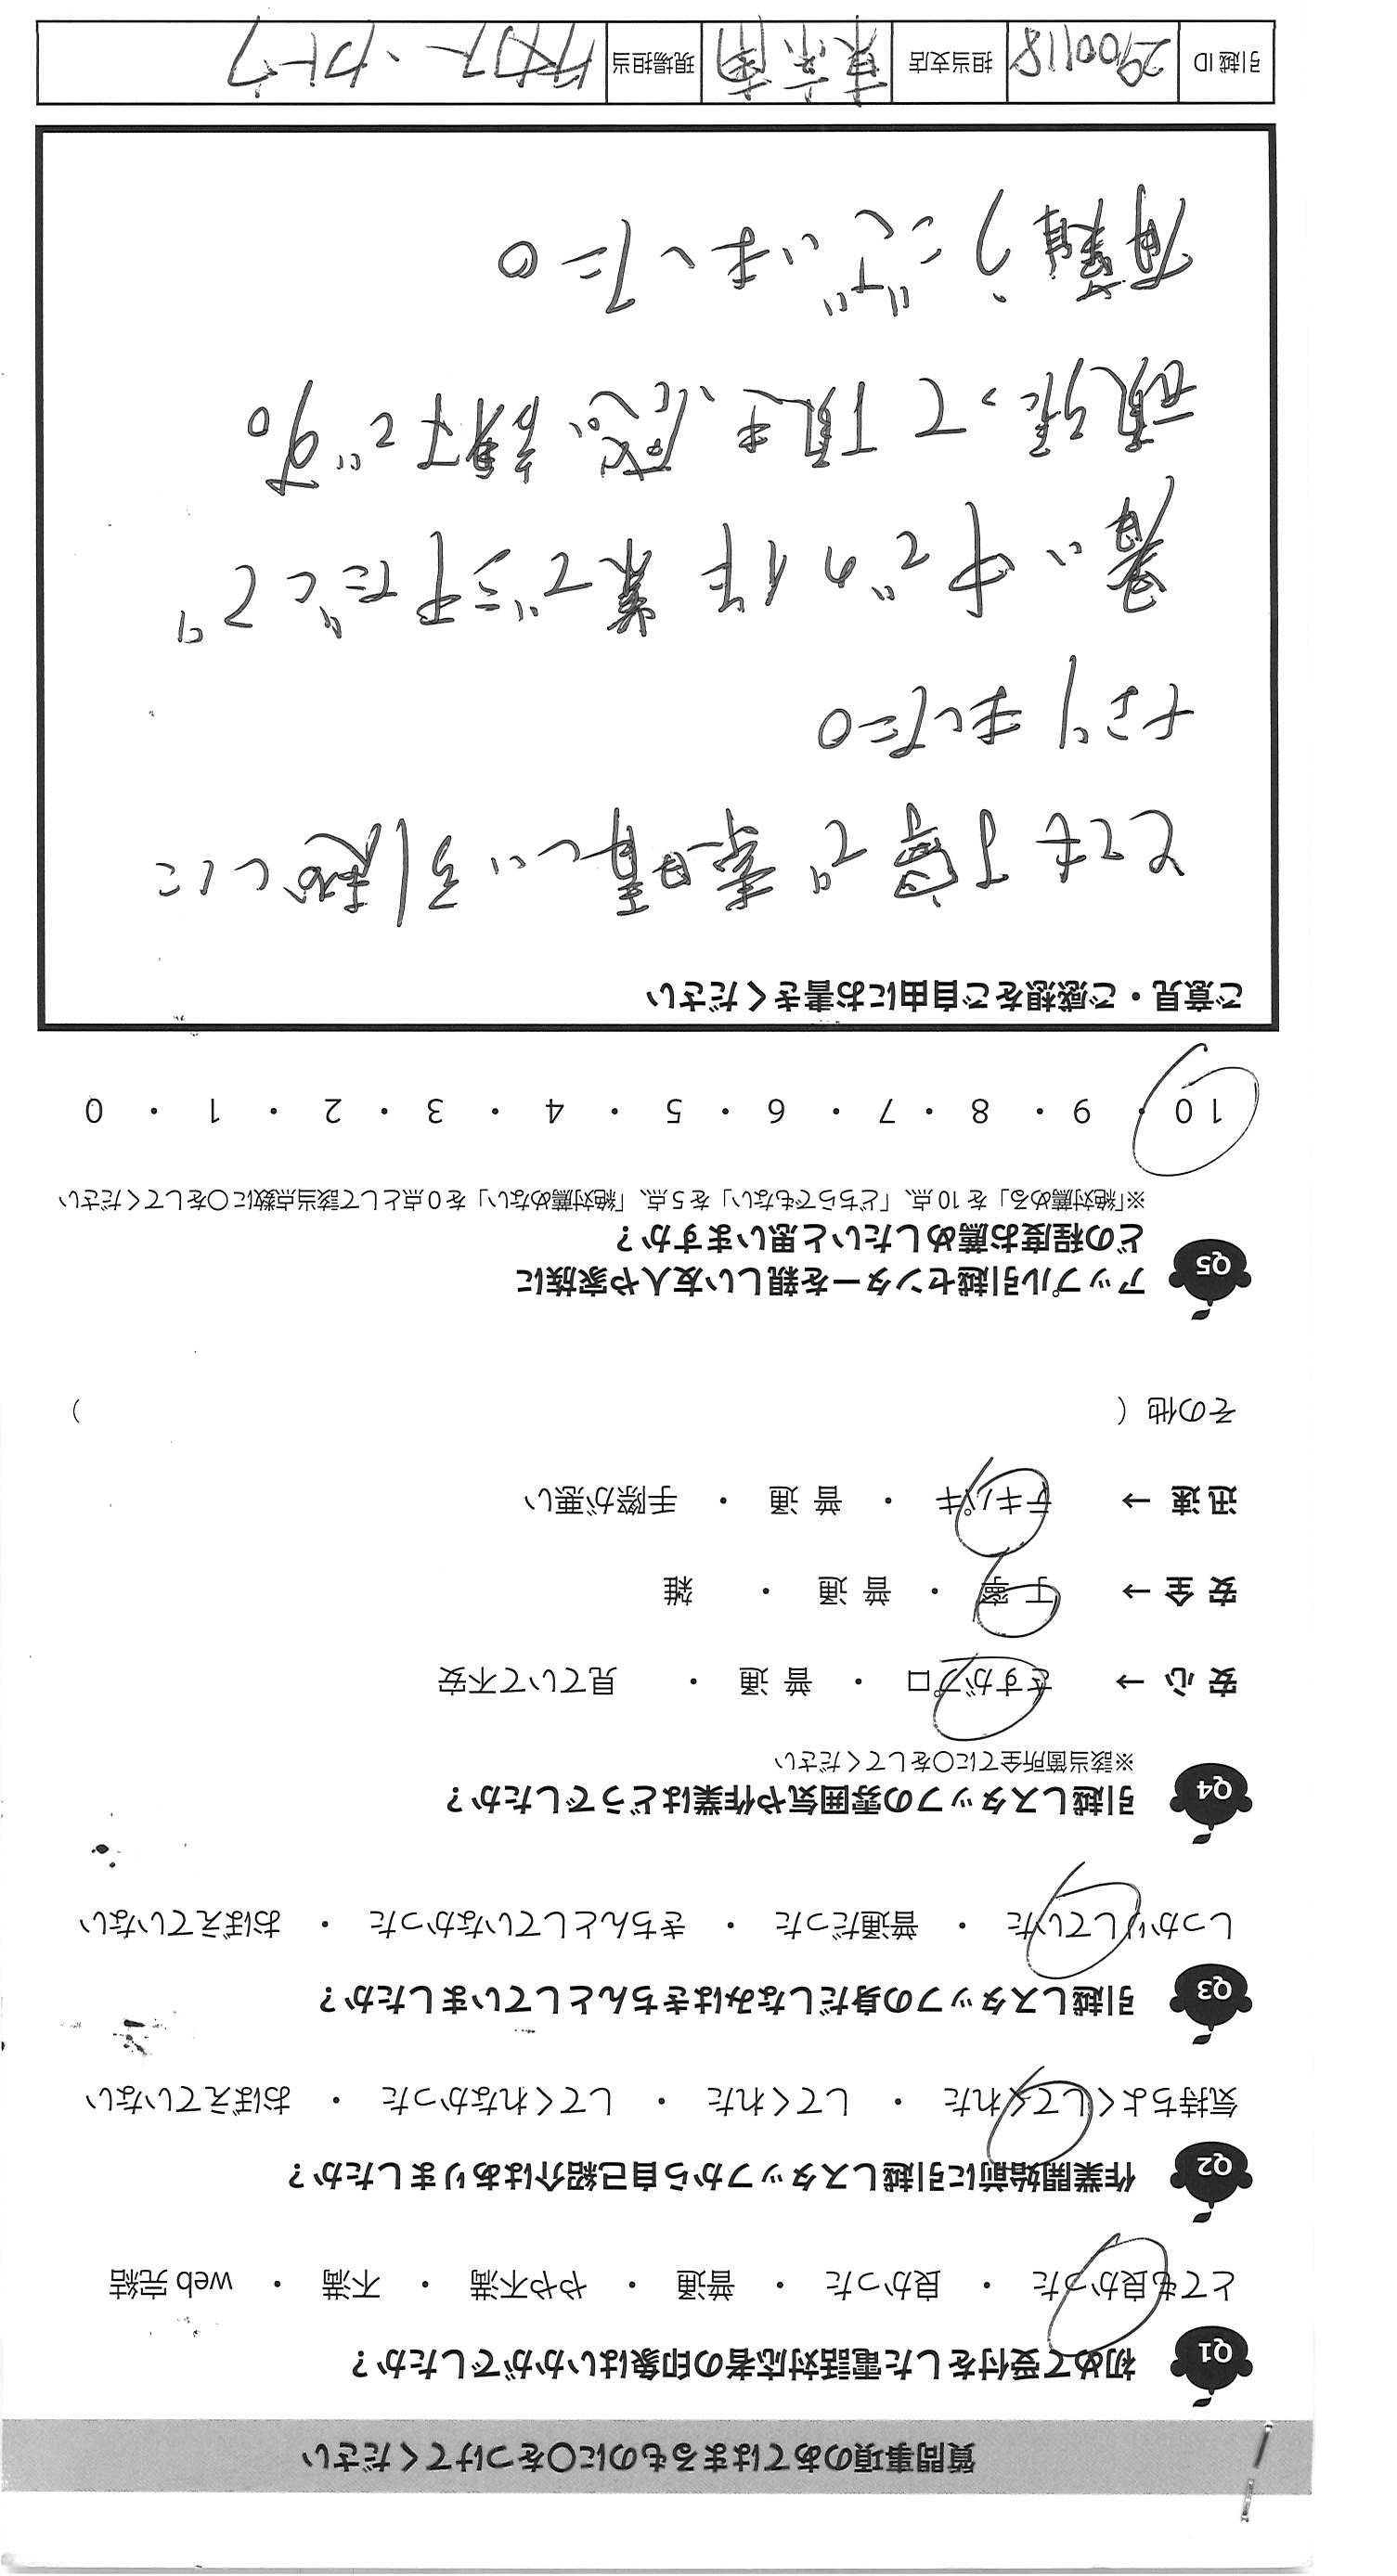 質問事項のあてはまるものに○をつけてください
Q1 初めて受付をした電話対応者の印象はいかがでしたか？
とても良かった ・ 良かった ・ 普通 ・ やや不満 ・ 不満 ・ web 完結
Q2 作業開始前に引越しスタッフから自己紹介はありましたか？
気持ちよくしてくれた ・ してくれた ・ してくれなかった ・ おぼえていない
Q3 引越しスタッフの身だしなみはきちんとしていましたか？
しっかりしていた ・ 普通だった ・ きちんとしていなかった ・ おぼえていない
Q4 引越しスタッフの雰囲気や作業はどうでしたか？
※該当箇所全てに○をしてください
安 心 → さすがプロ ・ 普 通 ・ 見ていて不安
安 全 → 丁 寧 ・ 普 通 ・ 雑
迅 速 → テキパキ ・ 普 通 ・ 手際が悪い
その他（ ）
Q5 アップル引越センターを親しい友人や家族に
どの程度お薦めしたいと思いますか？
※「絶対薦める」を 10 点、「どちらでもない」を 5 点、「絶対薦めない」を 0 点として該当点数に○をしてください
10 ・ 9 ・ 8 ・ 7 ・ 6 ・ 5 ・ 4 ・ 3 ・ 2 ・ 1 ・ 0
ご意見・ご感想をご自由にお書きください
とても丁寧で素晴しい引越しに
なりました。
暑い中での作業で
頑張って頂き感謝です。
有難うございました。
引越 ID 2900118 担当支店 東京南 現場担当